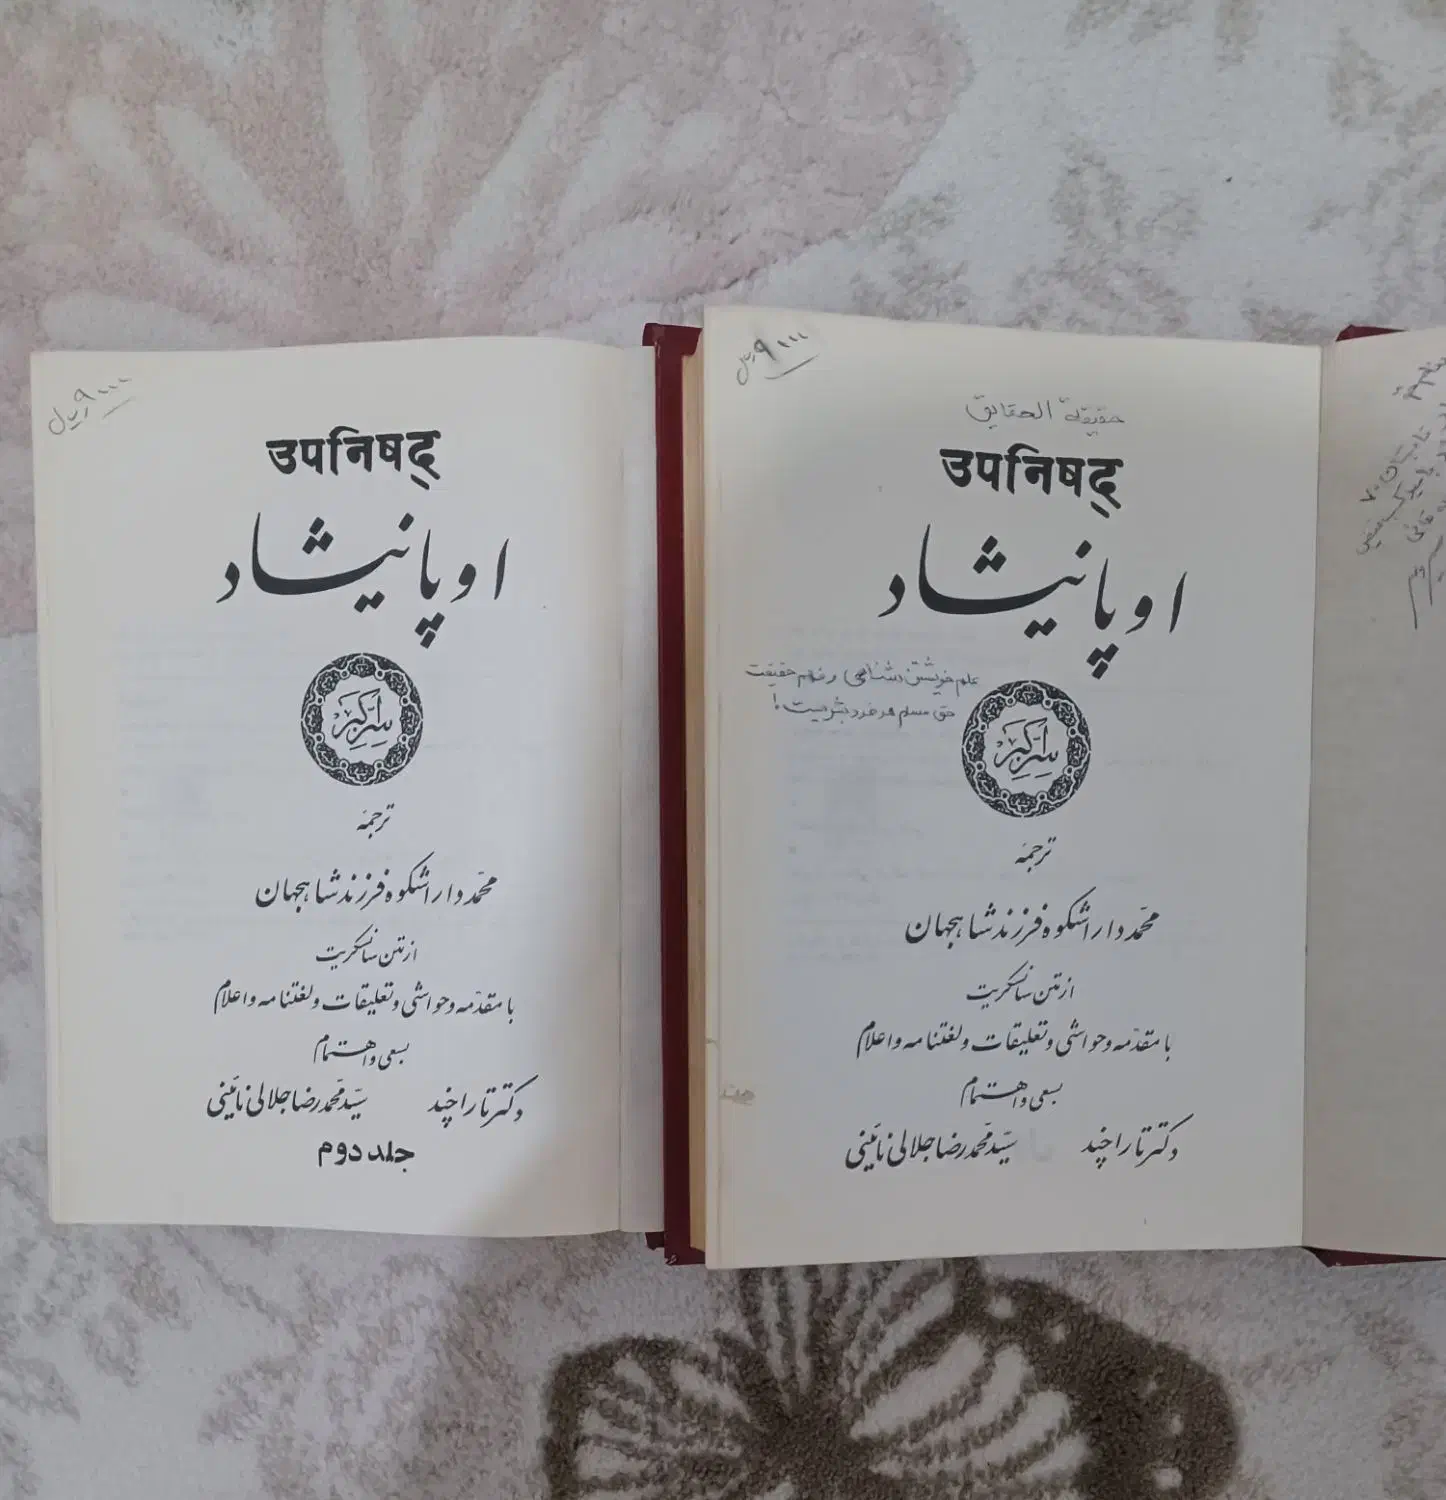 ۹۰۰۰ ریال
उपनिषद्
اوپانیشاد
سرّ اکبر
ترجمهٔ
محمّد داراشکوه فرزند شاهجهان
از متن سانسکریت
با مقدّمه و حواشی و تعلیقات و لغتنامه و اعلام
بسعی و اهتمام
دکتر تاراچند سیّد محمّدرضا جلالی نائینی
جلد دوم
۹۰۰۰ ریال
حقیقة الحقایق
उपनिषद्
اوپانیشاد
علم خویشتن شناسی و فهم حقیقت
حق مسلم هر فرد بشریست!
سرّ اکبر
ترجمهٔ
محمّد داراشکوه فرزند شاهجهان
از متن سانسکریت
با مقدّمه و حواشی و تعلیقات و لغتنامه و اعلام
بسعی و اهتمام
دکتر تاراچند سیّد محمّدرضا جلالی نائینی